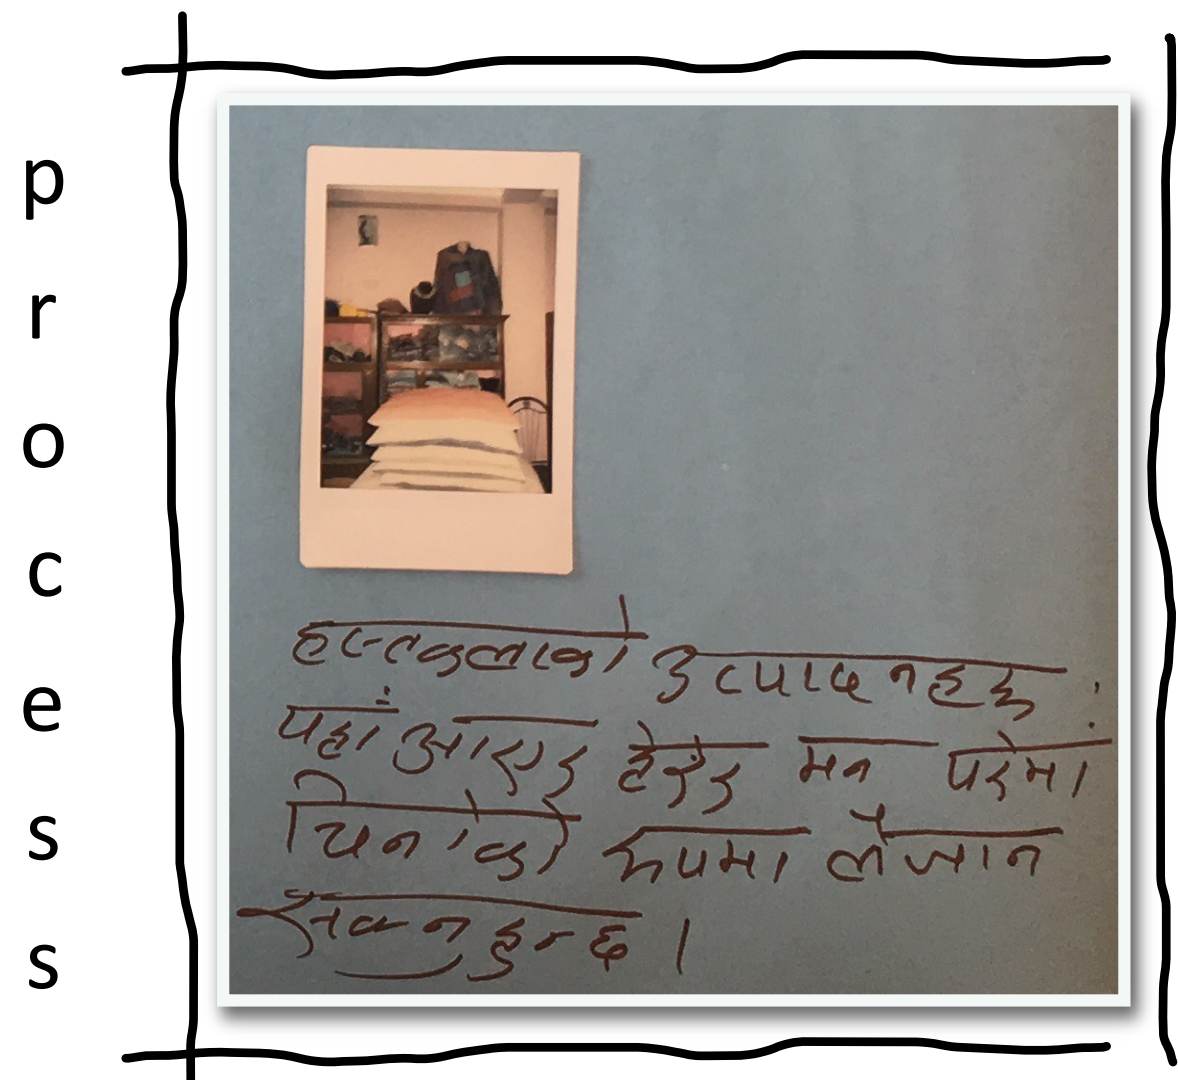 process
हस्तकलाको उत्पादनहरू :
यहाँ आएर हेरेर मन परेमा
चिनोको रूपमा लैजान
सक्नुहुन्छ ।